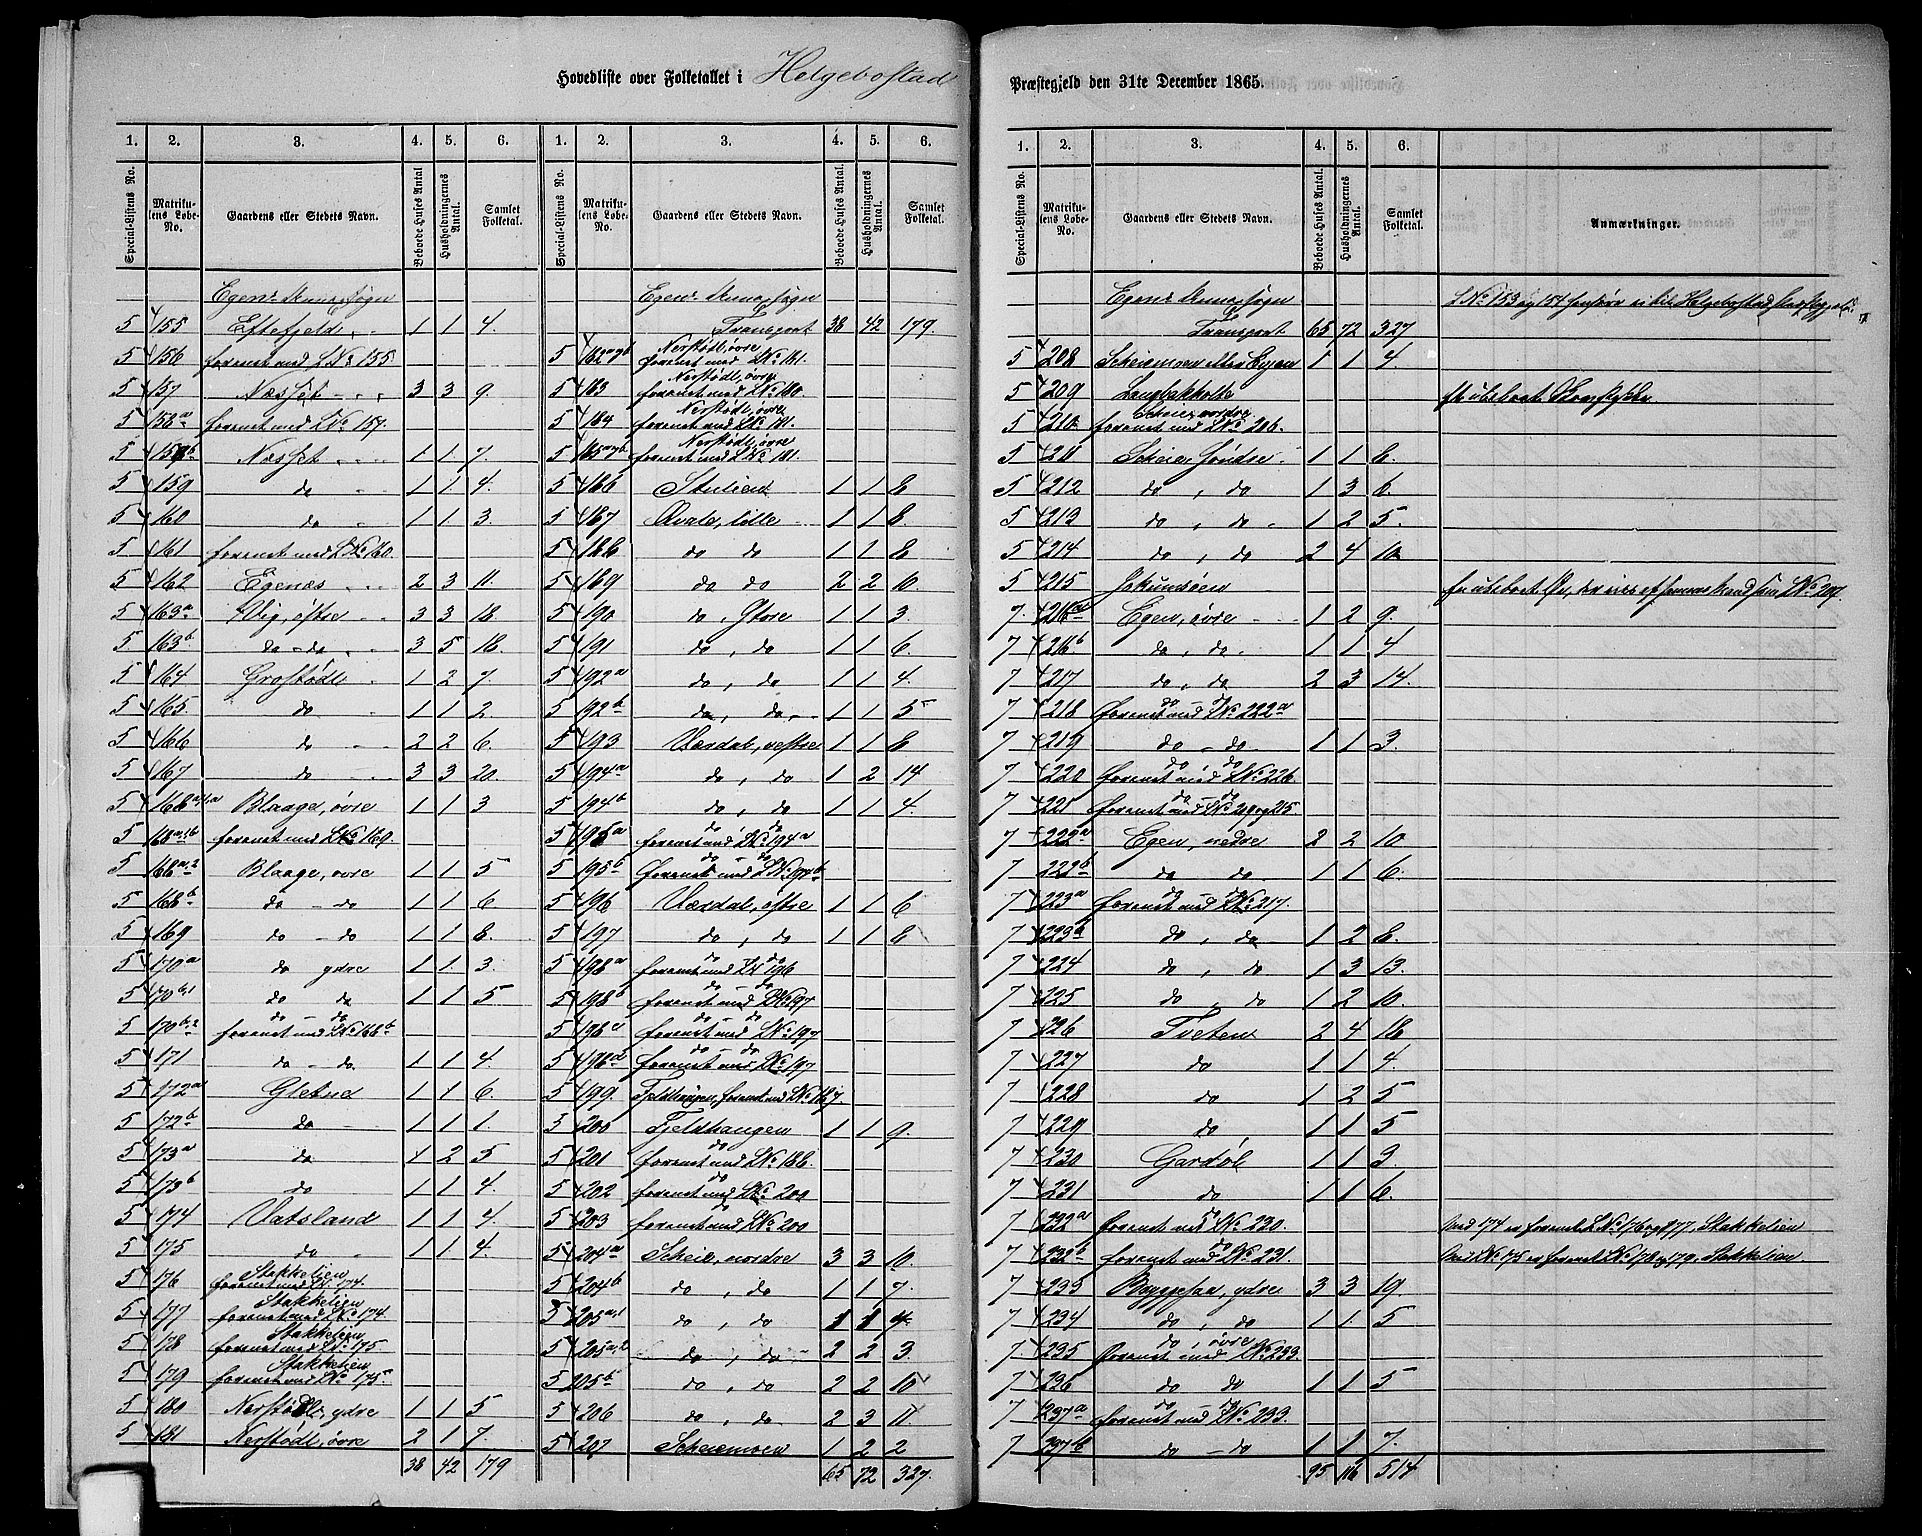 Hovedliste over Folketallet i Helgebostad
Præstegjeld den 31te December 1865.
1. 2. 3. 4. 5. 6. 1. 2. 3. 4. 5. 6.
Special-Listens No. Matrikulens Løbe-No. Gaardens eller Stedets Navn. Beboede Huses Antal Husholdningernes Antal. Samlet Folketal. Special-Listens No. Matrikulens Løbe-No. Gaardens eller Stedets Navn. Beboede Huses Antal Husholdningernes Antal. Samlet Folketal.
Egens Annexsogn
5 155 Eftefjeld 1 1 4.
5 156 forenet med LNo 155.
5 157 Næsset 3 3 9.
5 158a forenet med LNo 157.
5 158b Næsset 1 1 7.
5 159 do 1 1 4.
5 160 do 1 1 3.
5 161 forenet med LNo 160.
5 162 Egenæs 2 3 11.
5 163a Vig, østre 3 3 18.
5 163b do - do 3 5 18.
5 164 Grostødl 1 2 7.
5 165 do 1 1 2.
5 166 do 2 2 6.
5 167 do 3 3 20.
5 168a,1a Blaage, øvre 1 1 3
5 168a,1b forenet med LNo 169.
5 168a,2 Blaage, øvre 1 1 5
5 168b do - do 1 1 6
5 169 do - do 1 1 8.
5 170a do ydre 1 1 3.
5 170b,1 do do 1 1 5
5 170b,2 do - do forenet med LNo 168b
5 171 do - do 1 1 4.
5 172a Gletne 1 1 6.
5 172b do 1 1 1.
5 173a do 1 2 5
5 173b do 1 1 4.
5 174 Vatsland 1 1 4.
5 175 do 1 1 4.
5 176 Stakkelien forenet med LNo 174.
5 177 Stakkelien forenet med LNo 174.
5 178 Stakkelien forenet med LNo 175
5 179 Stakkelien forenet med LNo 175.
5 180 Nerstødl, ydre 1 1 5
5 181 Nerstødl, øvre 2 1 7.
38 42 179
Egens Annexsogn
Transport 38 42 179.
5 Nerstødl, øvre forenet med LNo 181.
5 183 Nerstødl, øvre forenet med LNo 180.
5 184 Nerstødl, øvre forenet med LNo 181.
5 185a og b Nerstødl, øvre forenet med LNo 181.
5 186 Stulien 1 1 8
5 187 Qvale, lille 1 1 8.
5 188 do do 1 1 8
5 189 do do 2 2 10.
5 190 do, store 1 1 3.
5 191 do, do 1 1 6.
5 192a do, do 1 1 4.
5 192b do, do 1 1 5
5 193 Værdal, vestre 1 1 8
5 194a do, do 1 2 14
5 194b do, do 1 1 4.
5 195a do do forenet med LNo 194a
5 195b do - do forenet med LNo 194b
5 196 Værdal, østre 1 1 6
5 197 do, do 1 1 8
5 198a do do forenet med LNo 196
5 198b do - do forenet med LNo 197
5 198c do - do forenet med LNo 197
5 198d do - do forenet med LNo 197
5 199. Fjeldhaugen, forenet med LNo 187.
5 200 Fjeldhaugen 1 1 9.
5 201 do forenet med LNo 186.
5 202 forenet med LNo 200
5 203 forenet med LNo 200
5 204a Scheie, nordre 3 3 10.
5 204b do, do 1 1 7.
5 205a,1 do, do 1 1 4.
5 205a,2 do, do 2 2 3.
5 205b do, do 2 2 10
5 206 do, do 2 3 11
5 207 Scheiemoen 1 2 2
65 72 327.
1. 2. 3. 4. 5. 6.
Special-Listens No. Matrikulens Løbe-No. Gaardens eller Stedets Navn. Beboede Huses Antal. Husholdningernes Antal. Samlet Folketal. Anmærkninger.
Egens Annexsogn
Transport 65 72 327
5 208 1 1 4.
5 209 Langbakholte
5 210 Scheie, nordre forenet med LNo 206.
5 211 Scheie, søndre 1 1 6.
5 212 do, do 1 3 6.
5 213 do, do 1 2 5.
5 214 do, do 2 4 10
5 215
7. 216a Egen, øvre 1 2 9.
7 216b do, do 1 1 4
7 217 do, do 2 3 14.
7 218 do do forenet med LNo 222a
7 219 do - do 1 1 3.
7 220 do do forenet med LNo 226.
7 221 do - do forenet med LNo
7 222a Egen, nedre 2 2 10
7 222b do do 1 1 6.
7 223a do - do forenet med LNo 217.
7 223b do, do 1 2 8.
7 224 do, do 1 3 13.
7 225 do, do 1 2 10.
7 226 Tveten 2 4 18
7 227 do 1 1 4.
7 228 do 1 2 5
7 229 do, 1 1 5
7 230 Gardøl 1 1 3.
7 231 do 1 1 6.
7 232a do forenet med LNo 230.
7 232b do forenet med LNo 231.
7 233 Byggesaa, ydre 3 3 19.
7 234 do, do 1 1 5
7 235 do, øvre forenet med LNo 233.
7 236 do do 1 1 5
7 237a do - do forenet med LNo 233.
7 237b do - do 1 1 7.
95 116 514
LNo 153 og 154 henføre til Helgebostad
En ubeboet
En ubeboet Øe, der eies af samme Mand som LNo 207.
Med 174 er forenet LNo 176 og 177, Stakkelien
Med LNo 175 er forenet LNo 178 og 179, Stakkelien.